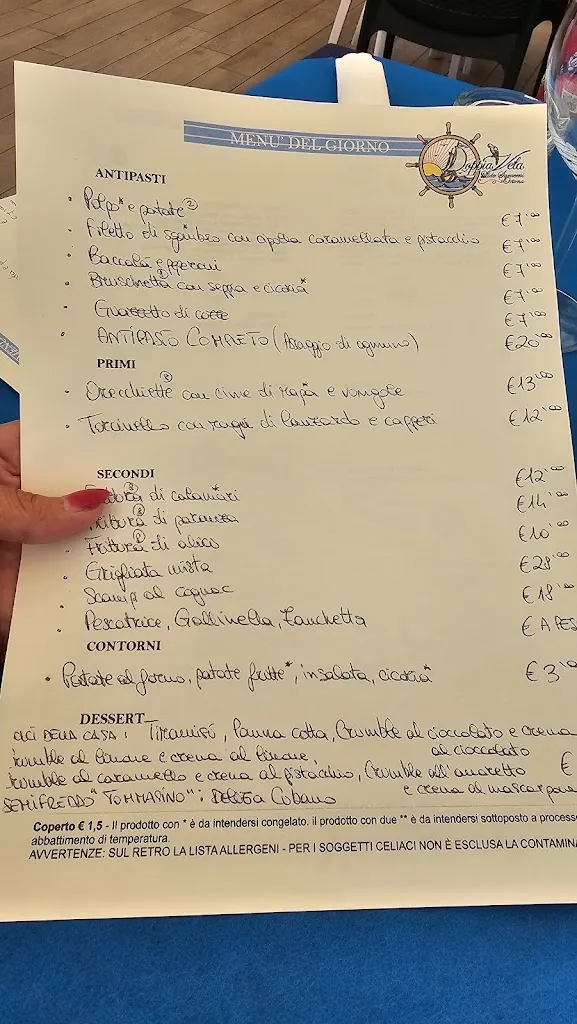 MENU' DEL GIORNO
Doppia Vela
ANTIPASTI
• Polpo* e patate② €7,00
• Filetto di sgombro con cipolla caramellata e pistacchio €7,00
• Baccalà e peperoni €7,00
• Bruschetta① con seppia e cicoria* €7,00
• Guazzetto di cozze €7,00
• ANTIPASTO COMPLETO (Assaggio di ognuno) €20,00
PRIMI
• Orecchiette con cime di rapa e vongole €13,00
• Torcinello con ragù di e capperi €12,00
SECONDI
di calamari €12,00
Frittura di paranza €14,00
• Frittura di alici €10,00
• Grigliata mista €28,00
• Scampi al cognac €18,00
• Pescatrice, Gallinella, Zanchetta € A PES
CONTORNI
• Patate al forno, patate fritte*, insalata, cicoria* €3,00
DESSERT
DLCI DELLA CASA: Tiramisù, Panna cotta, Crumble al cioccolato e crema
al cioccolato
rumble al limone e crema al limone,
rumble al caramello e crema al pistacchio, Crumble all'amaretto €
e crema al mascarpone
SEMIFREDDO "TOMMASINO": Delizia Cubano
Coperto € 1,5 - Il prodotto con * è da intendersi congelato. il prodotto con due ** è da intendersi sottoposto a processo
abbattimento di temperatura.
AVVERTENZE: SUL RETRO LA LISTA ALLERGENI - PER I SOGGETTI CELIACI NON È ESCLUSA LA CONTAMINA